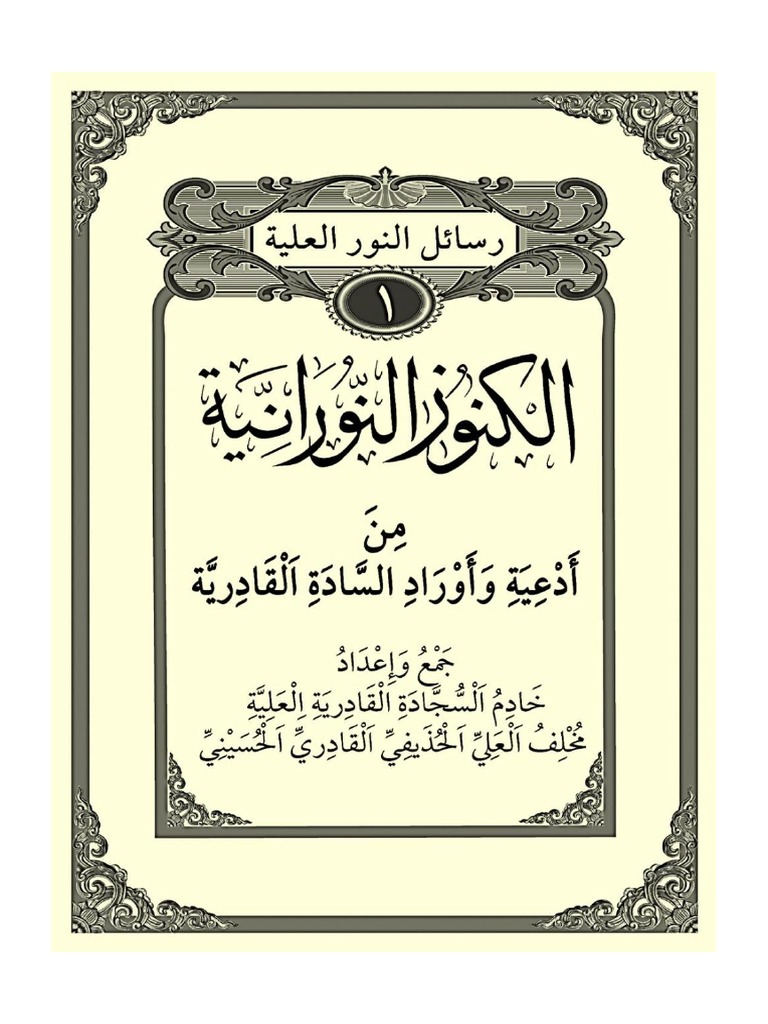 رسائل النور العلية
١
الكنوُز النّوُرَانِيَّة
مِنَ
أَدْعِيَةِ وَأَوْرَادِ السَّادَةِ اَلْقَادِريَّة
جَمْعُ وَإِعْدَادُ
خَادِمُ اَلْسُّجَّادَةِ اَلْقَادِرِيَةِ اِلْعَلِيَّةِ
مُخْلِفُ اَلْعَلِيِّ اَلْحُذَيفِيِّ اَلْقَادِريِّ اَلْحُسَيْنِيِّ